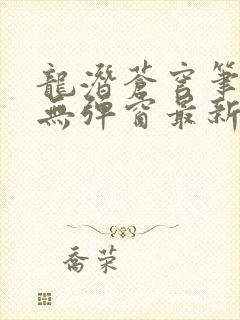 龍潛蒼穹筆
無彈窗最新
喬荣